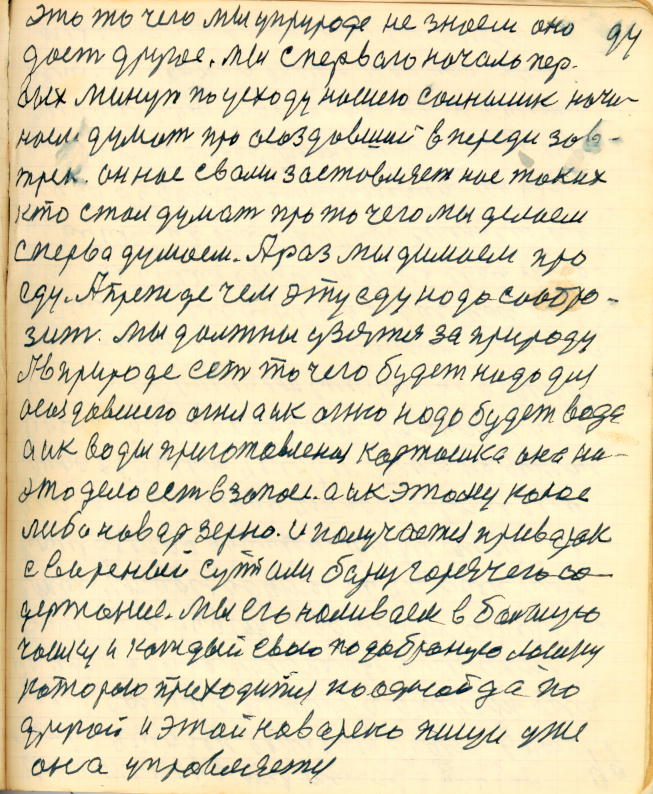 94
это то чего мы у природе не знаем оно
дает другое. Мы сперваго начало пер-
вых минут по усходу нашего солнышик начи-
наем думат про создавший впереди зав-
трек. он нас свами заставляет нас таких
кто стал думат про то чего мы делаем
сперва думаем. А раз мы димаем про
еду. А прежде чем эту еду надо сообро-
зит. Мы должны узятся за природу
А в природе сеть то чего будет надо для
создавшего огня аик огню надо будет вода
аик воды приготовления картошка она на
это дело есть взапас. аик этому какое
либо навар зерно. и получается приварак
свареный суп или балуг горячего со-
держание. Мы его наливаем в балшую
чашку и каждый свою подобраную ложку
которою приходится по одной да по
другой и этой наварено пищи уже
она управляет